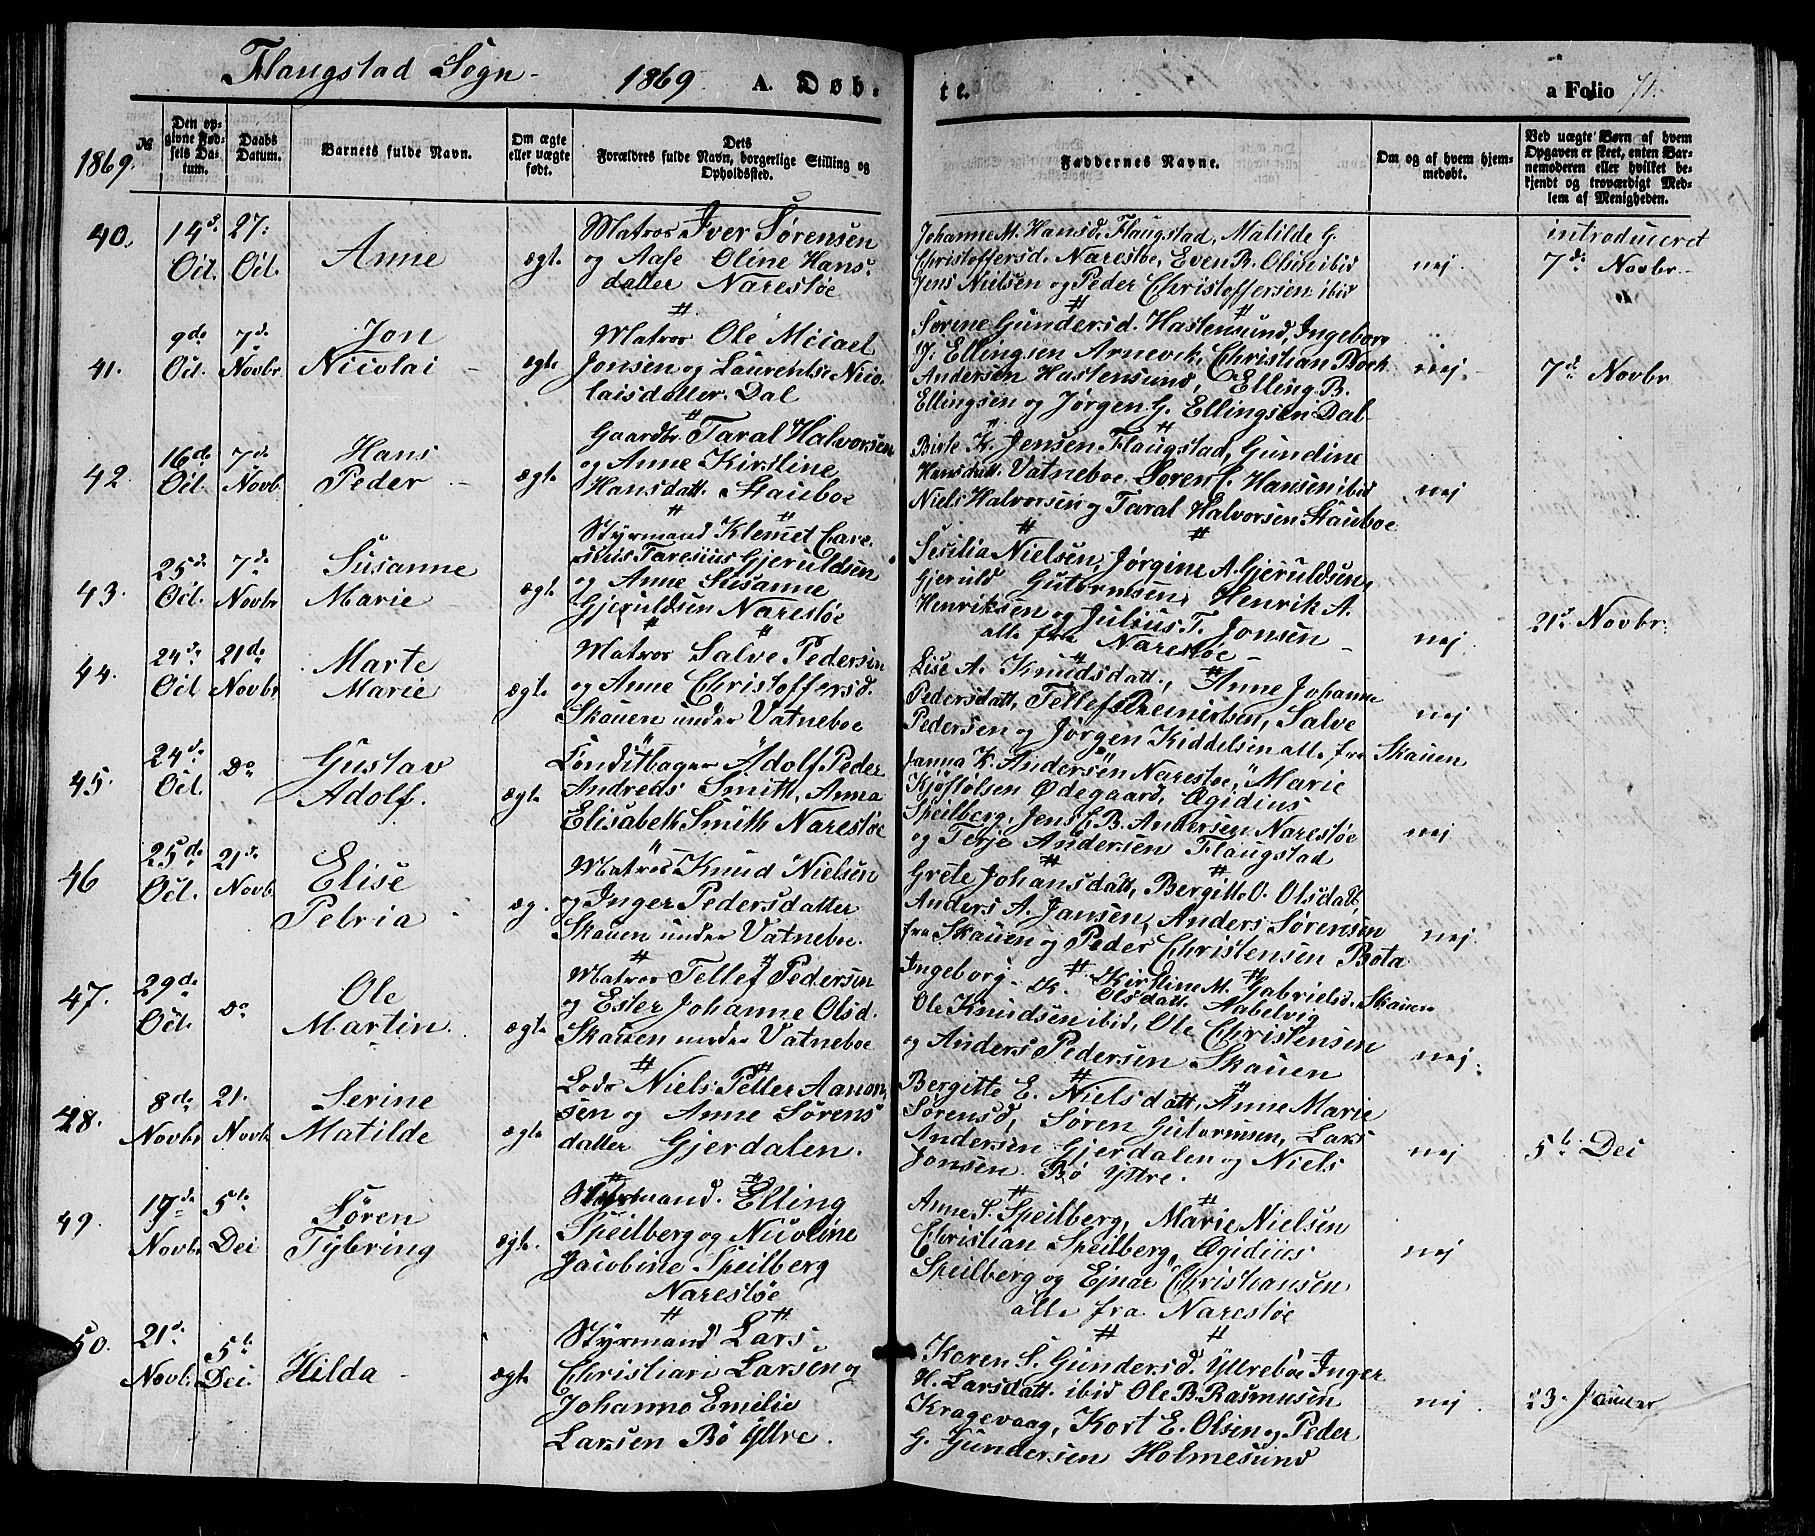 Flaugstad Sogn - 1869 A. Døb-
te.
a Folio 71.
1869.
№
Den op-
givne Fød-
sels Da-
tum.
Daabs
Datum.
Barnets fulde Navn.
Om ægte
eller uægte
født.
Dets
Forældres fulde Navn, borgerlige Stilling og
Opholdssted.
Faddernes Navne.
Om og af hvem hjem-
medøbt.
Ved uægte Børn af hvem
Opgaven er skeet, enten Bar-
nemoderen eller hvilket be-
kjendt og troværdigt Med-
lem af Menigheden.
40.
14d
Oct.
27.
Oct.
Anne
ægt.
Matros Iver Sørensen
og Aase Oline Hans-
datter Narestøe
Johanne M. Hansd. Flaugstad, Matilde G.
Christoffersd. Narestøe, Even B. Olsen ibid
Jens Nielsen og Peder Christoffersen ibid
nej.
introduceret
7de Novbr
41.
9de
Oct.
7d
Novbr
Jon
Nicolai
ægt.
Matros Ole Micael
Jonsen og Laurentse Nico-
laisdatter. Dal
Sørine Gundersd. Hastensund, Ingeborg
J. Ellingsen Arnevik, Christian Bock
Andersen Hastensund, Elling B.
Ellingsen og Jørgen G. Ellingsen Dal
nej.
7de Novbr
42.
16de
Oct.
7de
Novb.
Hans
Peder
ægt.
Gaardbr. Taral Halvorsen
og Anne Kirstine
Hansdatt. Stauboe
Birte K. Jensen Flaugstad, Gundine
Hansdatt. Vatneboe Søren J. Hansen ibid
Niels Halvorsen og Taral Halvorsen Stauboe
nej
43.
25de
Oct.
7de
Novbr
Susanne
Marie
ægt.
Styrmand Klemet
Gjeruldsen
og Anne Susanne
Gjeruldsen Narestøe
Sesilia Nielsen, Jørgine A. Gjeruldsen,
Gjeruld Gutormsen, Henrik A.
Henriksen og Julius T. Jonsen
alle fra Narestøe
nej
21de Novbr.
44.
24de
Oct
21de
Novbr
Marte
Marie
ægt.
Matros Salve Pedersen
og Anne Christoffersd.
Skauen under Vatneboe
Lise A. Knudsdatt., Anne Johanne
Pedersdatt, Tellef Reiniertsen, Salve
Pedersen og Jørgen Kiddelsen alle fra Skauen
nej
45.
24de
Oct.
Do
Gustav
Adolf.
ægt.
Conditbager Adolf Peder
Andreas Smith, Anna
Elisabeth Smith Narestøe
Janna K. Andersen Narestøe, Marie
Kjøstolsen Ødegaard, Ægidius
Speilberg, Jens J. B. Andersen Narestøe
og Terje Andersen Flaugstad
nej
46
25de
Oct.
21de
Novb.
Elise
Petria
æg.
Matros Knud Nielsen
og Inger Pedersdatter
Skauen under Vatnebo.
Grete Johansdatt, Bergitte O. Olsdatt,
Anders A. Jansen, Anders Sørensen
fra Skauen og Peder Christensen Bota
nej
47.
29de
Oct.
Do
Ole
Martin.
ægt.
Matros Tellef Pedersen
og Ester Johanne Olsd.
Skauen under Vatneboe
Ingeborg K. Olsdatt. Kirstine M. Gabrielsd. Skauen
Ole Knudsen ibid, Ole Christensen
og Anders Pedersen Skauen
nej.
48.
8de
Novbr
21.
Novb.
Serine
Matilde
ægt.
Lods Niels Petter Aanon-
sen og Anne Sørens
datter Gjerdalen.
Bergitte E. Nielsdatt, Anne Marie
Sørensd, Søren Gutormsen, Lars
Andersen Gjerdalen og Niels
Jonsen Bø Yttre.
nej
5t. Dei
49.
17de
Novbr
5te
Dei
Søren
Tybring
ægt.
Styrmand. Elling
Speilberg og Nicoline
Jacobine Speilberg
Narestøe
Anne S. Speilberg, Marie Nielsen
Christian Speilberg, Ægidius
Speilberg og Ejnar Christiansen
alle fra Narestøe
nej
50.
21d
Novb.
5t
Dei
Hilda
ægt.
Styrmand Lars
Christian Larsen og
Johanne Emelie
Larsen Bø Yttre.
Karen S. Gundersd. Yttrebøe Inger
H. Larsdatt. ibid Ole B. Rasmusen
Kragevaag, Kort E. Olsen og Peder
G. Gundersen Holmesund
nej
23. Januar